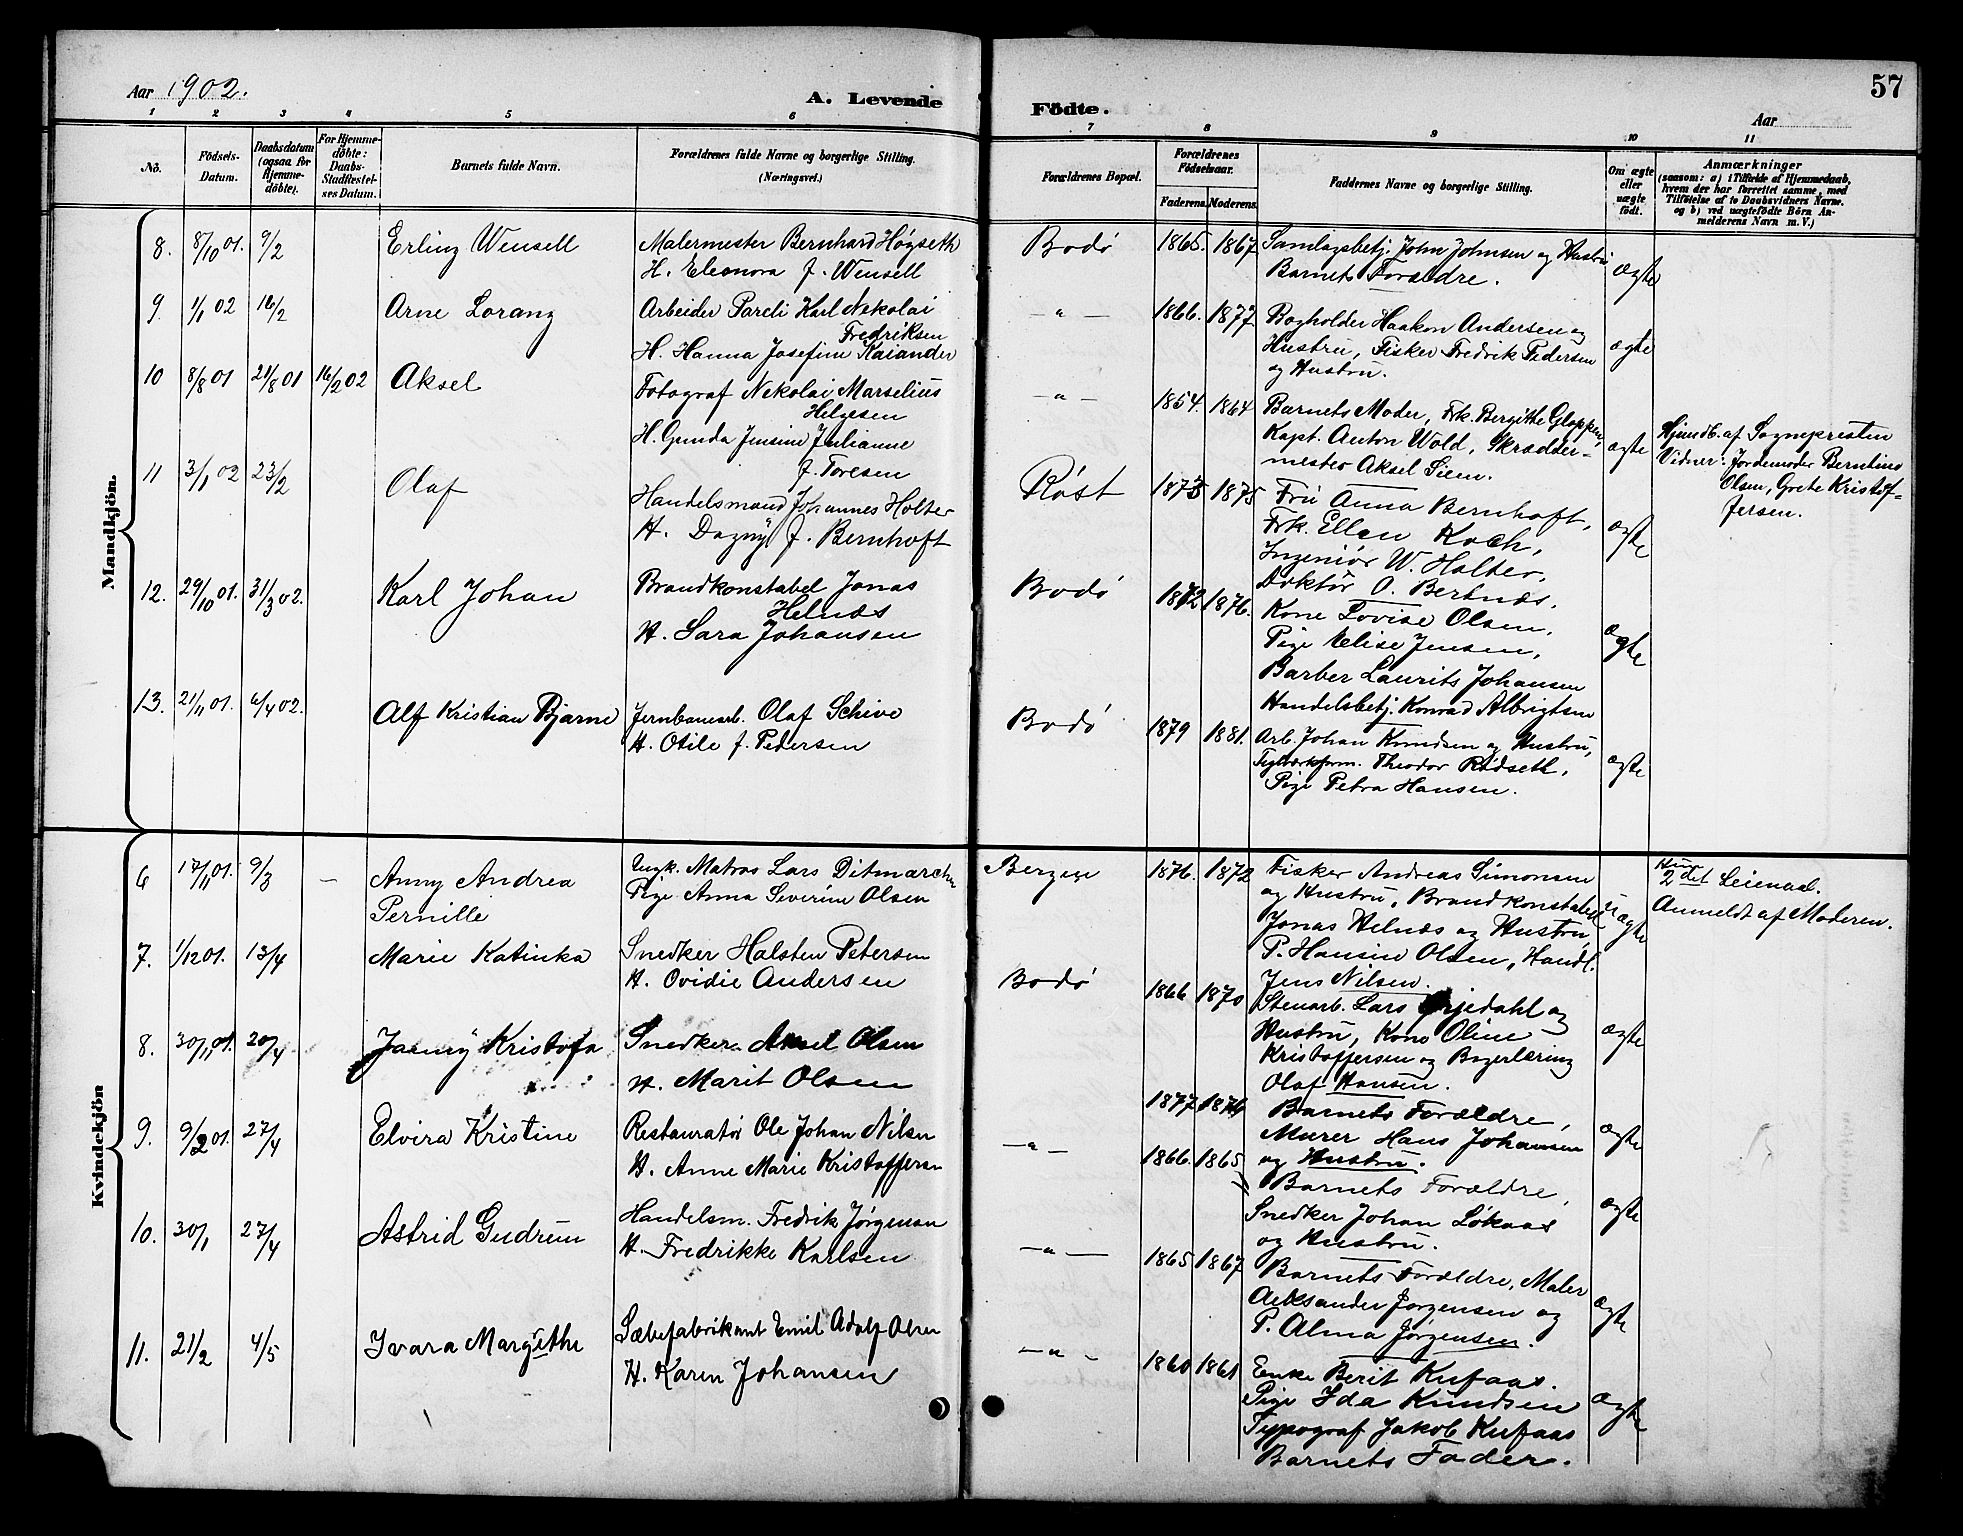 57
Aar 1902.
A. Levende
Födte.
Aar
1 2 3 4 5 6 7 8 9 10 11
No.
Födsels-Datum.
Daabsdatum (ogsaa for Hjemme-döbte).
For Hjemme-döbte: Daabs-Stadfæstel-ses Datum.
Barnets fulde Navn.
Forældrenes fulde Navne og borgerlige Stilling.
(Næringsvei.)
Forældrenes Bopæl.
Forældrenes Födselsaar.
Faderens. Moderens.
Faddernes Navne og borgerlige Stilling.
Om ægte eller uægte födt.
Anmærkninger
(saasom: a) i Tilfælde af Hjemmedaab,
hvem der har forrettet samme, med
Tilföielse af to Daabsvidners Navne.
og b) ved uægtefödte Börn An-
melderens Navn m. V.)
Mandkjön.
8. 8/10 01. 9/2 Erling Wensell
Malermester Bernhard Høgseth
H. Eleonora f. Wensell
Bodø 1865. 1867
Samlagsbetj. John Johnsen og Hustru
Barnets Forældre.
ægte
9. 1/1 02 16/2 Arne Lorang
Arbeider Pareli Karl Nekolai
Fredriksen
H. Hanna Josefine Kaiander
— " — 1866. 1877
Bogholder Haakon Andersen og
Hustru, Fisker Fredrik Pedersen
og Hustru.
ægte
10 8/8 01 21/8 01 16/2 02 Aksel
Fotograf Nekolai Marselius
Helgesen
H. Gunda Jensine Julianne
f. Toresen
— " — 1854. 1864
Barnets Moder, Frk. Bergithe Gloppen,
Kapt. Anton Wold, Skrædder-
mester Aksel Siem.
ægte
Hjemdb. af Sognepresten
Vidner: Jordemoder Berntine
Olsen, Grete Kristof-
fersen.
11 3/1 02 23/2 Olaf
Handelsmand Johannes Holter
H. Dagny f. Bernhoft
Røst 1873 1875
Fru Anna Bernhoft,
Frk. Ellen Koch,
Ingeniør W. Holter,
Doktor O. Bertnæs.
ægte
12. 29/10 01. 31/3 02. Karl Johan
Brandkonstabel Jonas
Helnæs
H. Sara Johansen
Bodø 1872 1876.
Kone Lovise Olsen.
Pige Elise Jensen,
Barber Laurits Johansen
Handelsbetj. Konrad Albrigtsen
ægte
13. 21/11 01. 6/4 02. Alf Kristian Bjarne
Jernbanearb. Olaf Schive
H. Otile f. Pedersen
Bodø 1879 1881.
Arb. Johan Knudsen og Hustru,
Theodor Rødseth,
Pige Petra Hansen.
ægte
Kvindekjön
6 17/11 01. 9/3 — Anny Andrea
Pernille
Ungk. Matros Lars Ditmarchen
Pige Anna Severine Olsen
Bergen 1876. 1872
Fisker Andreas Simonsen
og Hustru, Brandkonstabel
Jonas Helnæs og Hustru
P. Hansine Olsen, Handl.
Jens Nilsen.
uægte
Hun
2det Leiemaal.
Anmeldt af Moderen.
7. 1/12 01. 13/4 Marie Katinka
Snedker Halsten Petersen
H. Ovidie Andersen
Bodø 1866 1870
Stenarb. Lars og
Hustru, Kone Oline
Kristoffersen og Bagerlæring
Olaf Hansen.
ægte
8. 30/11 01. 20/4 Jenny Kristofa
Snedker Aksel Olsen
H. Marit Olsen
1877 1874
Barnets Forældre,
Murer Hans Johansen
og Hustru.
ægte
9. 9/2 01. 27/4 Elvira Kristine
Restauratør Ole Johan Nilsen
H. Anne Marie Kristoffersen
— " — 1866. 1865
Barnets Forældre,
Snedker Johan Løkaas
og Hustru.
ægte
10. 30/1 27/4 Astrid Gudrun
Handelsm. Fredrik Jørgensen
H. Fredrikke Karlsen
— " — 1865 1867
Barnets Forældre, Maler
Aleksander Jørgensen og
P. Alma Jørgensen.
ægte
11. 21/2 4/5 Ivara Margithe
Sæbefabrikant Emil Adolf Olsen
H. Karen Johansen
— " — 1860 1861
Enke Berit Kufaas.
Pige Ida Knudsen
Typograf Jakob Kufaas
Barnets Fader.
ægte